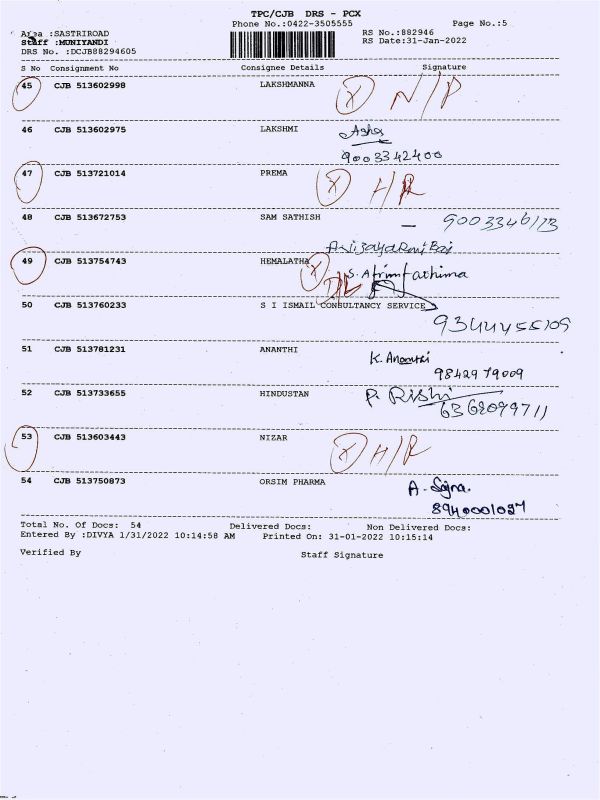 TPC/CJB DRS - PCX
Phone No.:0422-3505555 Page No.:5
Area :SASTRIROAD RS No.:882946
Staff :MUNIYANDI RS Date:31-Jan-2022
DRS No. :DCJB88294605
S No Consignment No Consignee Details Signature
45 CJB 513602998 LAKSHMANNA X N/P
46 CJB 513602975 LAKSHMI Asha
9003342400
47 CJB 513721014 PREMA X H/R
48 CJB 513672753 SAM SATHISH - 9003346173
49 CJB 513754743 HEMALATHA X D/L S. Afrin fathima
50 CJB 513760233 S I ISMAIL CONSULTANCY SERVICE
9344455109
51 CJB 513781231 ANANTHI K. Ananthi
9842979009
52 CJB 513733655 HINDUSTAN P. Rishi
6369099711
53 CJB 513603443 NIZAR X H/R
54 CJB 513750873 ORSIM PHARMA A. Sajna.
8940001027
Total No. Of Docs: 54 Delivered Docs: Non Delivered Docs:
Entered By :DIVYA 1/31/2022 10:14:58 AM Printed On: 31-01-2022 10:15:14
Verified By Staff Signature